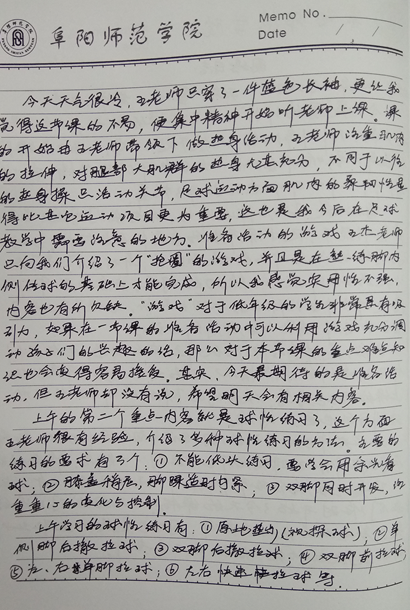 阜阳师范学院
Memo No.
Date / /
今天天气很冷,王老师只穿了一件蓝色长袖,更让我
觉得这节课的不易,便集中精神开始听老师上课。课
的开始由王老师带领下做热身活动,王老师注重肌肉
的拉伸,对腿部大肌群的热身尤其如此,不同于以往
的热身操只活动关节,足球运动方面肌肉的柔韧性显
得比其它运动项目更为重要,这也是我今后在足球
教学中需要注意的地方。准备活动的游戏王老师
只向我们介绍了一个“抢圈”的游戏,并且是在熟练脚内
侧传球的基础上才能完成,所以我感觉实用性不强,
内容也有所欠缺。“游戏”对于低年级的学生非常具有吸
引力,如果在一节课的准备活动中可以利用游戏充分调
动孩子们的兴趣的话,那么对于本节课的重点难点知
识也会变得容易接受。其实,今天最期待的是准备活
动,但王老师却没有说,希望明天会有相关内容。
上午的第二个重点内容就是球性练习了,这个方面
王老师很有经验,介绍了多种球性练习的方法。主要的
练习的要求有三个:①不能低头练习,要学会用余光看
球;②膝盖稍屈,脚踝适时内紧;③双脚同时开发,注
重重心的变化与控制。
上午学习的球性练习有:①原地(踩球);②单
侧脚后撤拉球;③双脚后撤拉球;④双脚前拉球
⑤左、右单脚拉球;⑥左右快速拉球等。